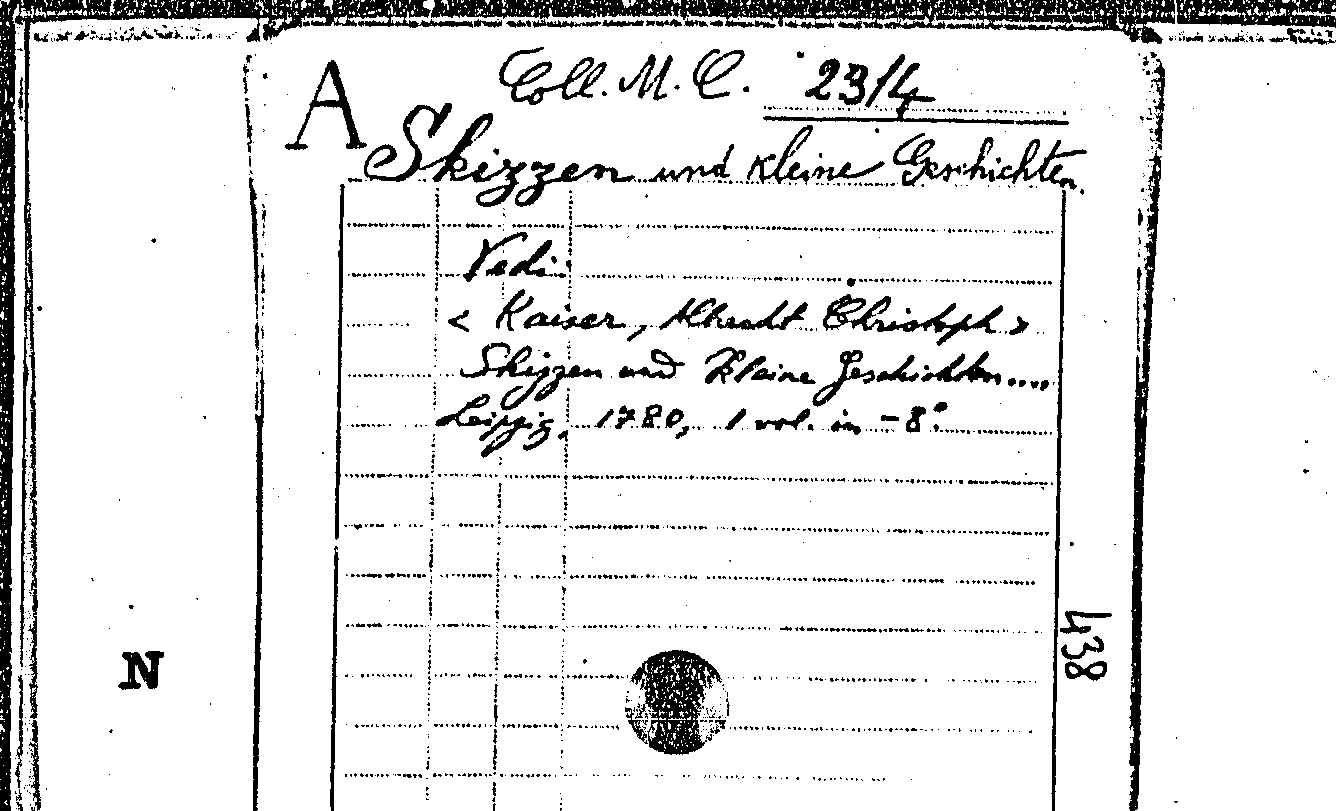 A Coll. M. C. 23/4
Skizzen und kleine Geschichten.
Vedi:
< Kaiser, Albrecht Christoph >
Skizzen und kleine Geschichten....
Leipzig, 1780, 1 vol. in -8°.
438
N